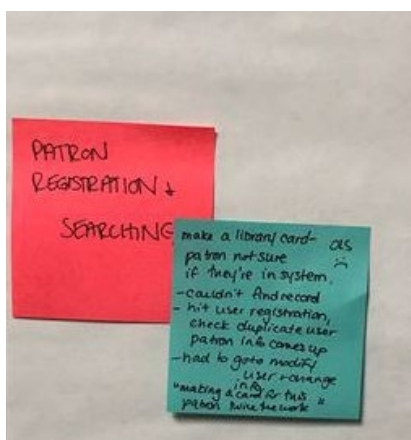 PATRON
REGISTRATION +
SEARCHING
make a library card-
patron not sure
if they're in system.
- couldn't find record
- hit user registration,
check duplicate user
patron info comes up
- had to go to modify
user + change
info
"making a card for this
patron twice the work"